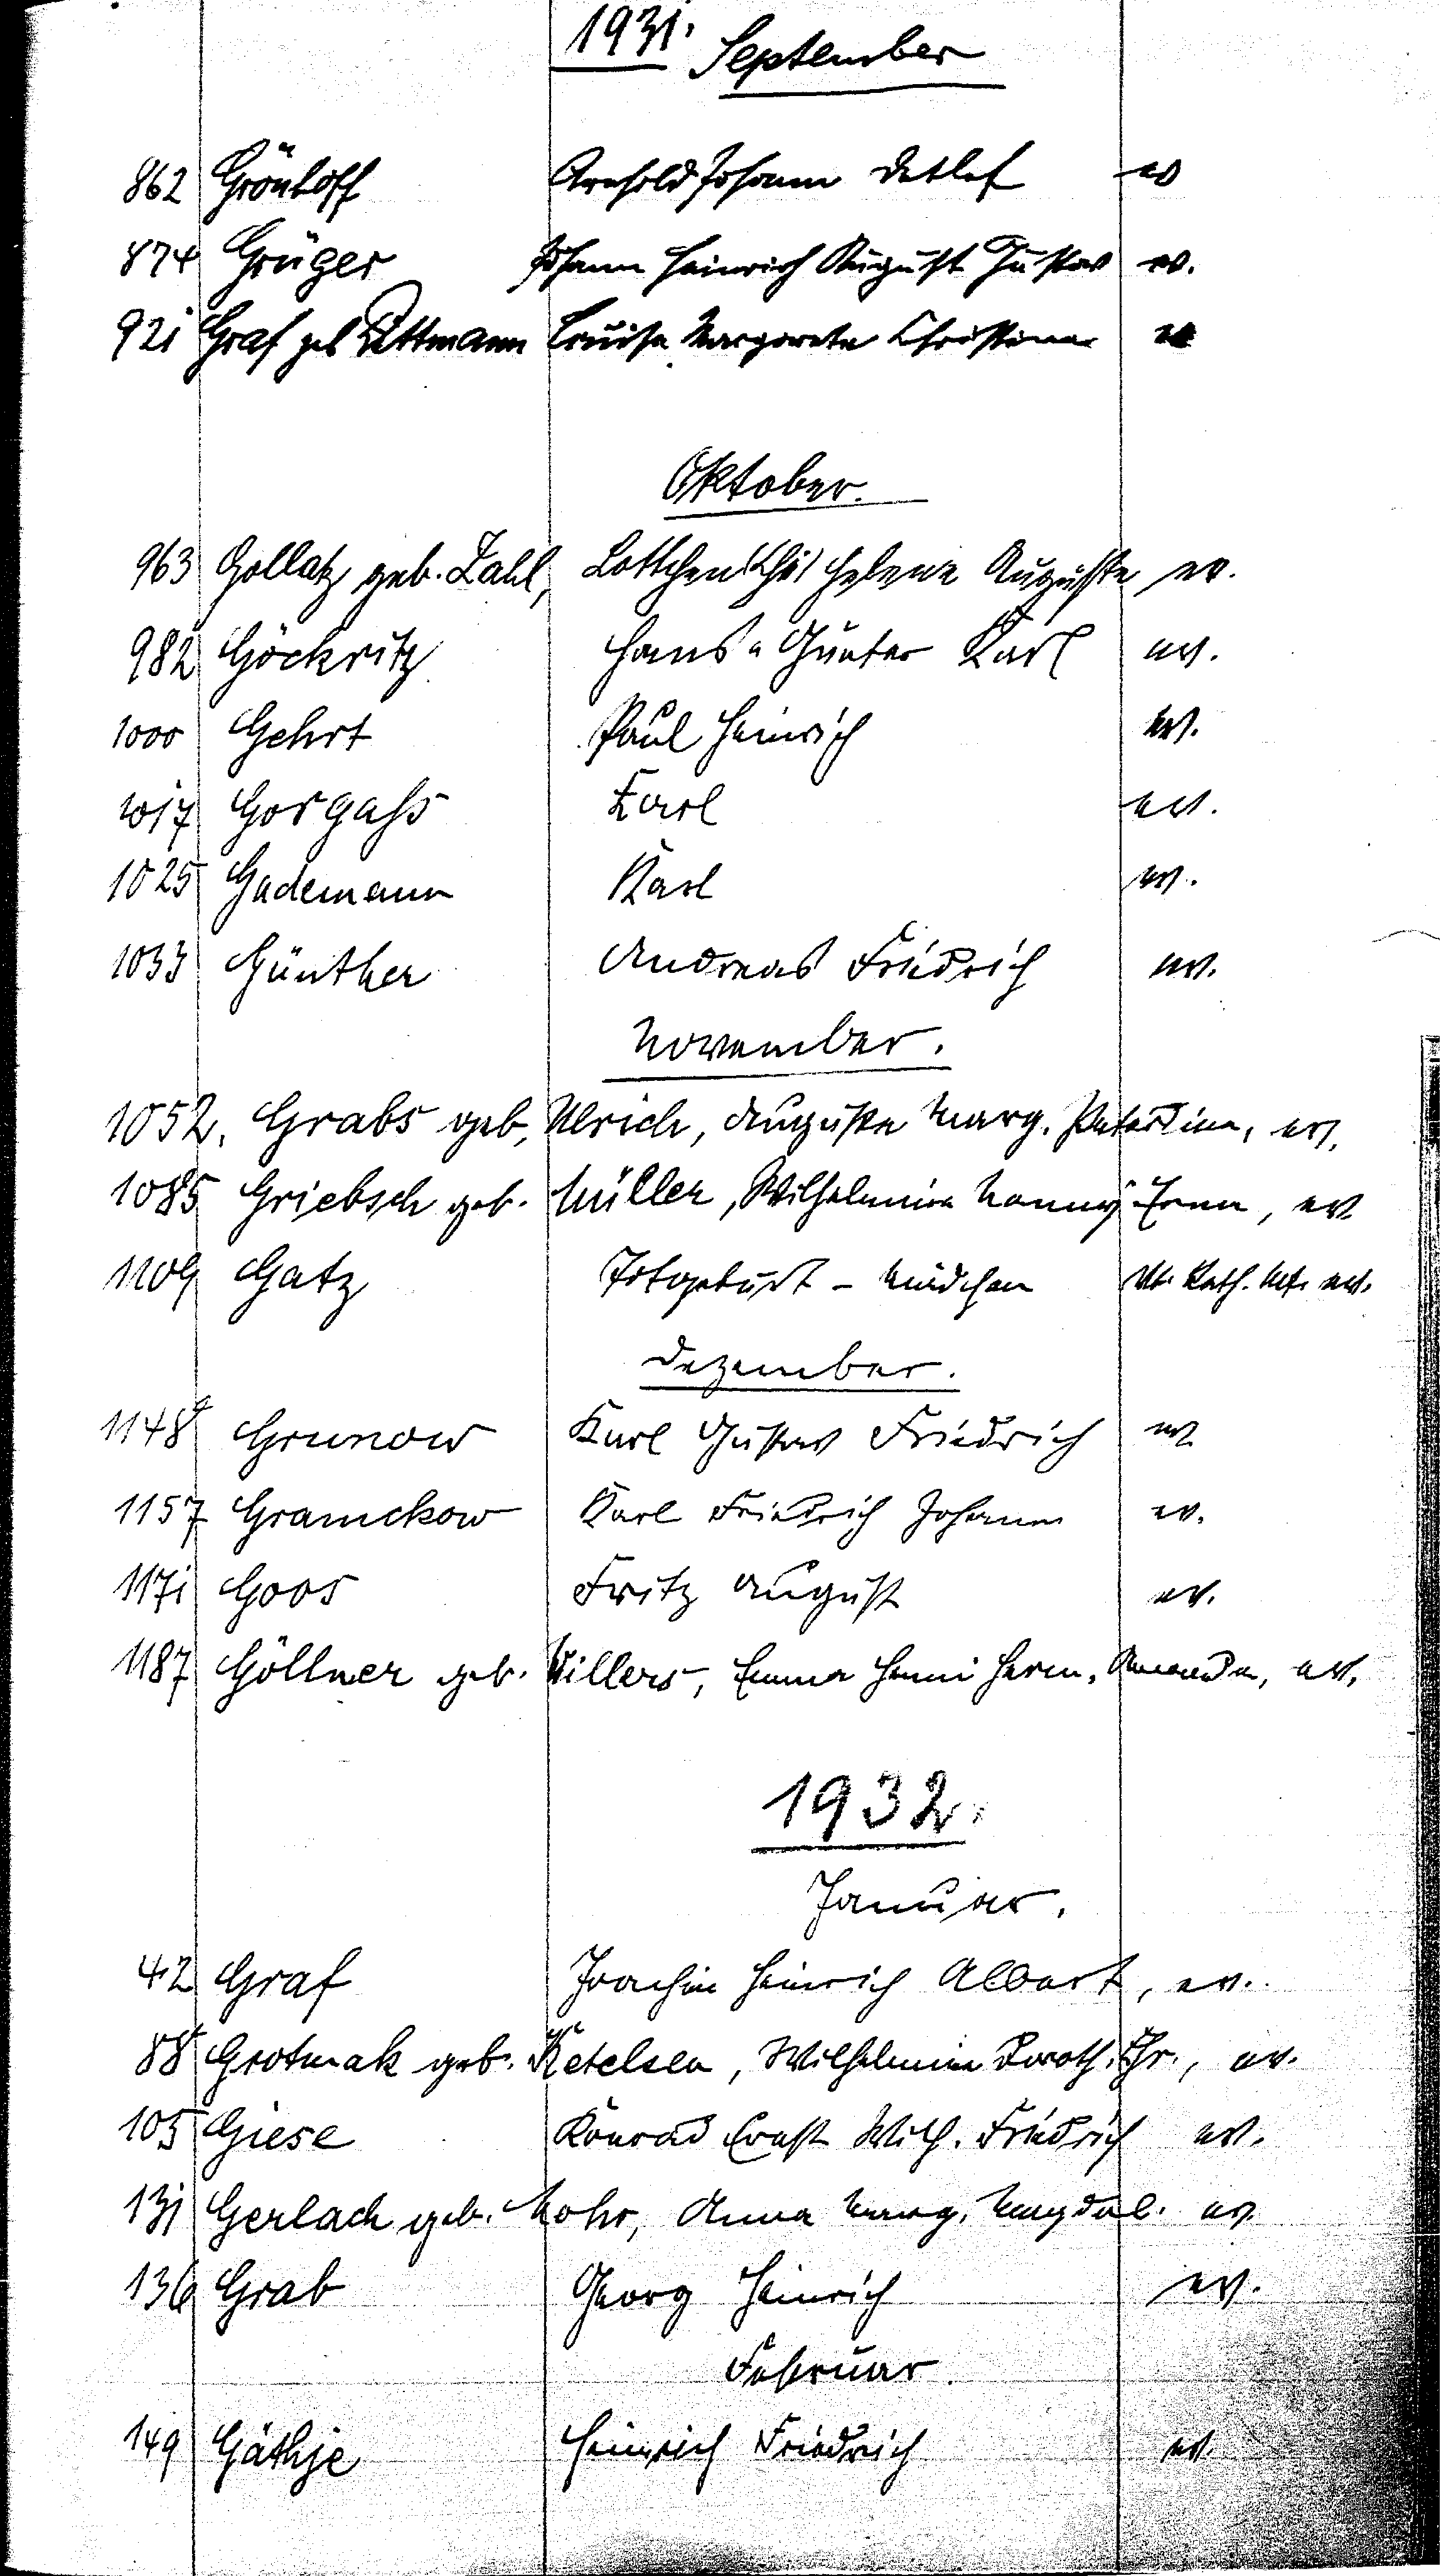 1931. September
862 Grönhoff Arnold Johann Detlef ev
874 Grüger Johann Heinrich August Gustav ev.
921 Graf geb Dettmann Louise Margareta Christina ev
Oktober.
963 Gollatz geb. Zahl, Lottchen Helene Auguste ev.
982 Göckritz Hans-Günter Karl ev.
1000 Gehrt Paul Heinrich ev.
1017 Gorgaß Karl ev.
1025 Gademann Karl ev.
1033 Günther Andreas Friedrich ev.
November.
1052. Grabs geb. Ulrich, Auguste Marg. Petersine, ev.
1085 Griebsch geb. Müller, Wilhelmine Nanny Erna, ev.
1109 Gatz Totgeburt - Mädchen Vt. Kath. Mt. ev.
Dezember.
1148 Grunow Karl Gustav Friedrich ev
1157 Gramckow Karl Friedrich Johann ev.
1171 Goos Fritz August ev.
1187 Göllner geb. Willers, Emma Henni Herm. Amanda, ev.
1932.
Januar.
42 Graf Joachim Heinrich Albert, ev.
88 Grotmak geb. Ketelsen, Wilhelmine Doroth. Chr., ev.
105 Giese Konrad Ernst Wilh. Friedrich ev.
131 Gerlach geb. Mohr, Anna Marg. Magdal. ev.
136 Grab Georg Heinrich ev.
Februar
149 Gäthje Heinrich Friedrich ev.